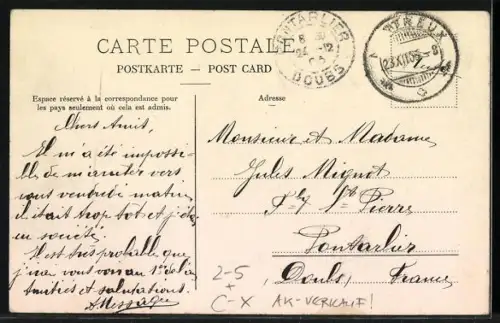 CARTE POSTALE
POSTKARTE — POST CARD
Espace réservé à la correspondance pour
les pays seulement où cela est admis.
Adresse
PONTARLIER
24 -12
DOUBS
23 XII
Chers Amis,
Il m'a été impossi-
ble de m'arrêter vers
vous vendredi matin
il était trop tôt et j'étais
en société.
Il est très probable que
j'irai vous voir au 1er de l'a
Amitiés et salutations.
Monsieur et Madame
Jules Mignot
Fbg St Pierre
Pontarlier
Doubs, France
2-5
+
C-X AK-VERKAUF!